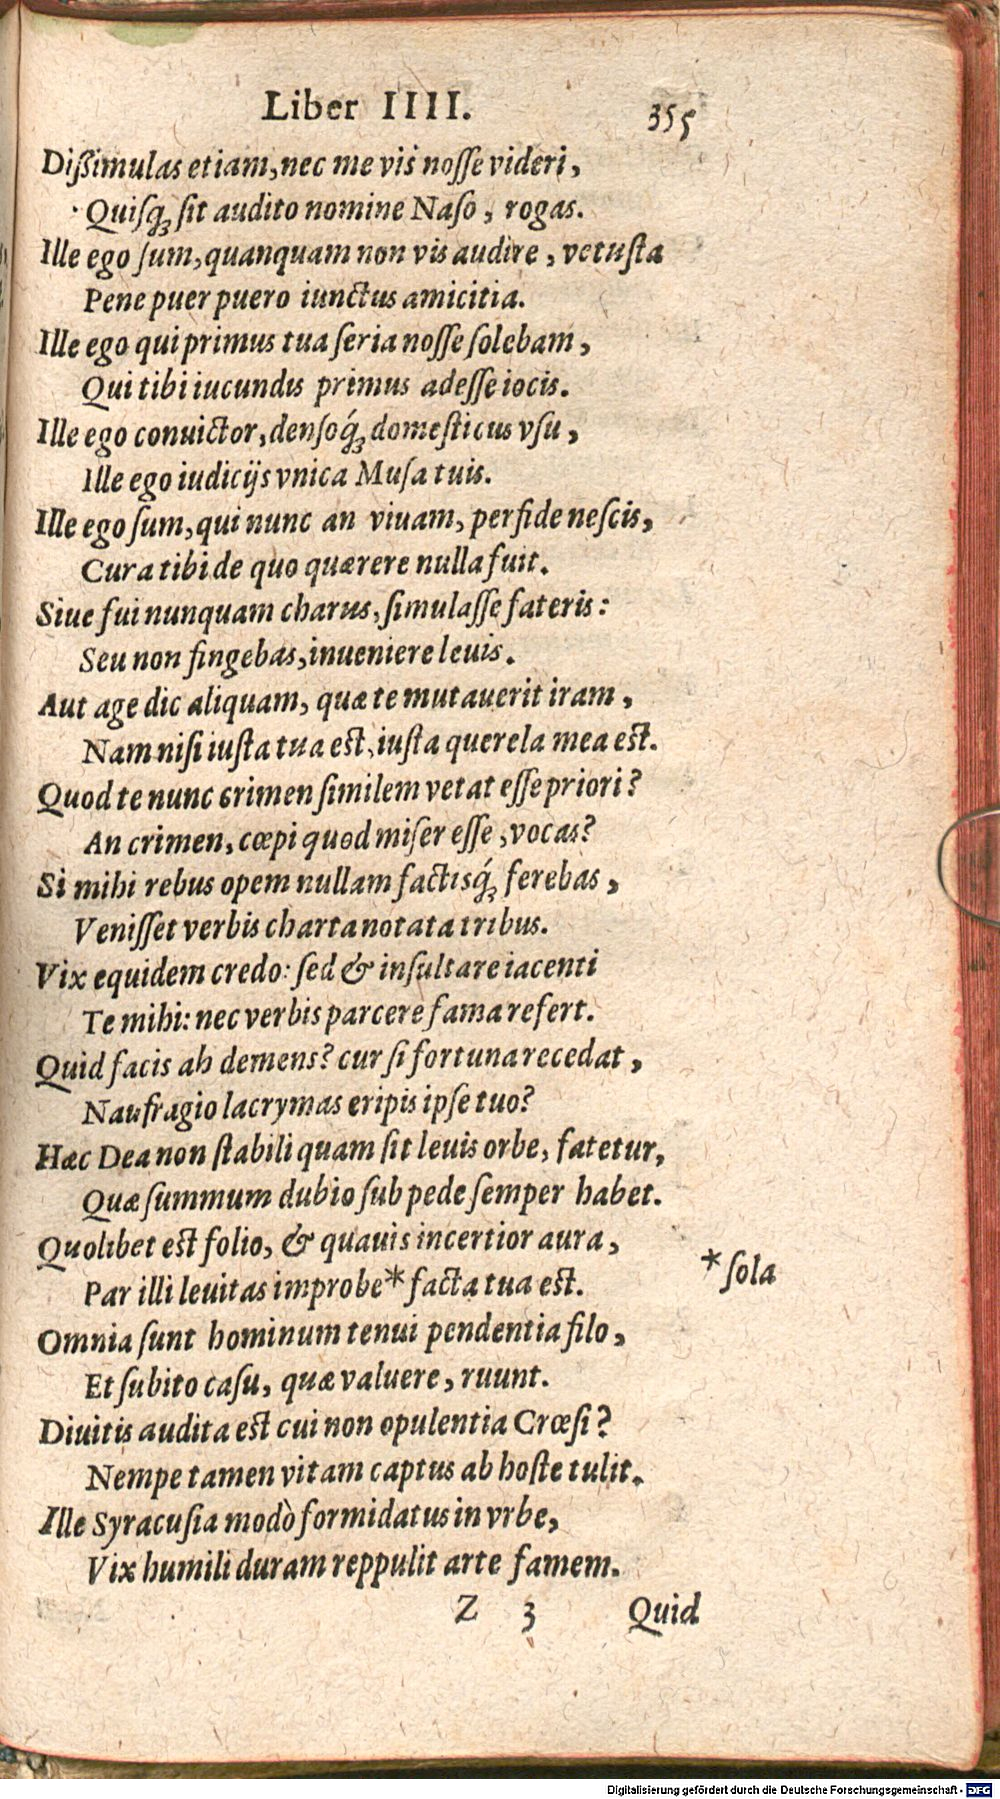 Liber IIII. 355
Dißimulas etiam, nec me vis nosse videri,
Quisq; sit audito nomine Naso, rogas.
Ille ego sum, quanquam non vis audire, vetusta
Pene puer puero iunctus amicitia.
Ille ego qui primus tua seria nosse solebam,
Qui tibi iucundis primus adesse iocis.
Ille ego conuictor, densoq́; domesticus vsu,
Ille ego iudicijs vnica Musa tuis.
Ille ego sum, qui nunc an viuam, perfide nescis,
Cura tibi de quo quærere nulla fuit.
Siue fui nunquam charus, simulasse fateris:
Seu non fingebas, inueniere leuis.
Aut age dic aliquam, quæ te mutauerit iram,
Nam nisi iusta tua est, iusta querela mea est.
Quod te nunc crimen similem vetat esse priori?
An crimen, cœpi quod miser esse, vocas?
Si mihi rebus opem nullam factisq́; ferebas,
Venisset verbis charta notata tribus.
Vix equidem credo: sed & insultare iacenti
Te mihi: nec verbis parcere fama refert.
Quid facis ah demens? cur si fortuna recedat,
Naufragio lacrymas eripis ipse tuo?
Hæc Dea non stabili quam sit leuis orbe, fatetur,
Quæ summum dubio sub pede semper habet.
Quolibet est folio, & quauis incertior aura,
Par illi leuitas improbe* facta tua est. *sola
Omnia sunt hominum tenui pendentia filo,
Et subito casu, quæ valuere, ruunt.
Diuitis audita est cui non opulentia Crœsi?
Nempe tamen vitam captus ab hoste tulit.
Ille Syracusia modò formidatus in vrbe,
Vix humili duram reppulit arte famem.
Z 3 Quid
Digitalisierung gefördert durch die Deutsche Forschungsgemeinschaft - DFG